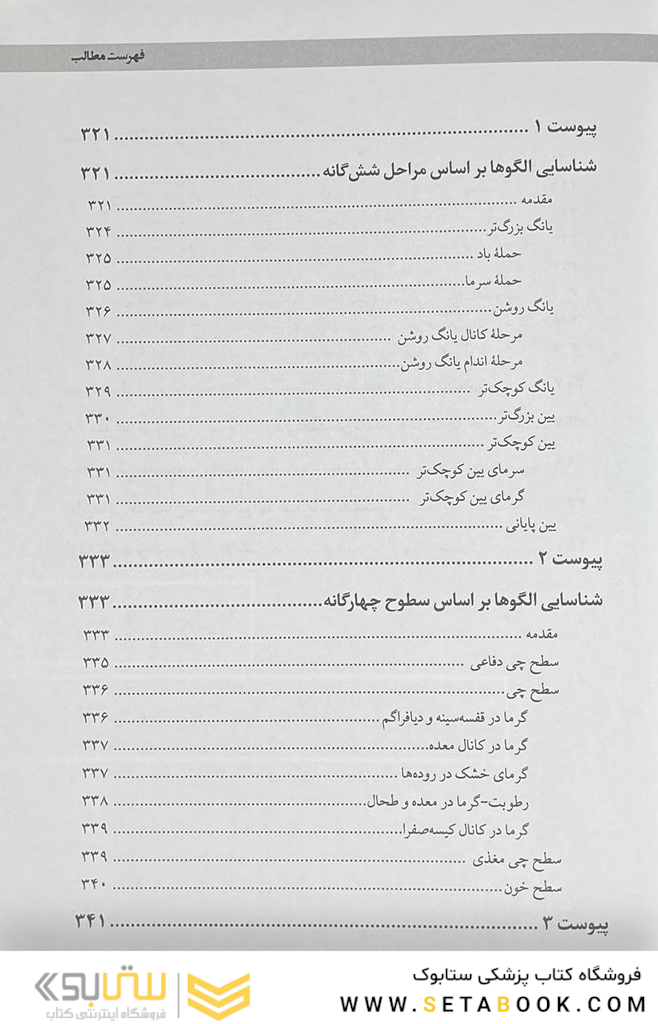 فهرست مطالب
پیوست ۱ ........ ۳۲۱
شناسایی الگوها بر اساس مراحل شش‌گانه ........ ۳۲۱
مقدمه ........ ۳۲۱
یانگ بزرگ‌تر ........ ۳۲۴
حملهٔ باد ........ ۳۲۵
حملهٔ سرما ........ ۳۲۵
یانگ روشن ........ ۳۲۶
مرحلهٔ کانال یانگ روشن ........ ۳۲۷
مرحلهٔ اندام یانگ روشن ........ ۳۲۸
یانگ کوچک‌تر ........ ۳۲۹
یین بزرگ‌تر ........ ۳۳۰
یین کوچک‌تر ........ ۳۳۱
سرمای یین کوچک‌تر ........ ۳۳۱
گرمای یین کوچک‌تر ........ ۳۳۱
یین پایانی ........ ۳۳۲
پیوست ۲ ........ ۳۳۳
شناسایی الگوها بر اساس سطوح چهارگانه ........ ۳۳۳
مقدمه ........ ۳۳۳
سطح چی دفاعی ........ ۳۳۵
سطح چی ........ ۳۳۶
گرما در قفسه‌سینه و دیافراگم ........ ۳۳۶
گرما در کانال معده ........ ۳۳۷
گرمای خشک در روده‌ها ........ ۳۳۷
رطوبت-گرما در معده و طحال ........ ۳۳۸
گرما در کانال کیسه‌صفرا ........ ۳۳۹
سطح چی مغذی ........ ۳۳۹
سطح خون ........ ۳۴۰
پیوست ۳ ........ ۳۴۱
فروشگاه کتاب پزشکی ستابوک
WWW.SETABOOK.COM
ستابوک
فروشگاه اینترنتی کتاب